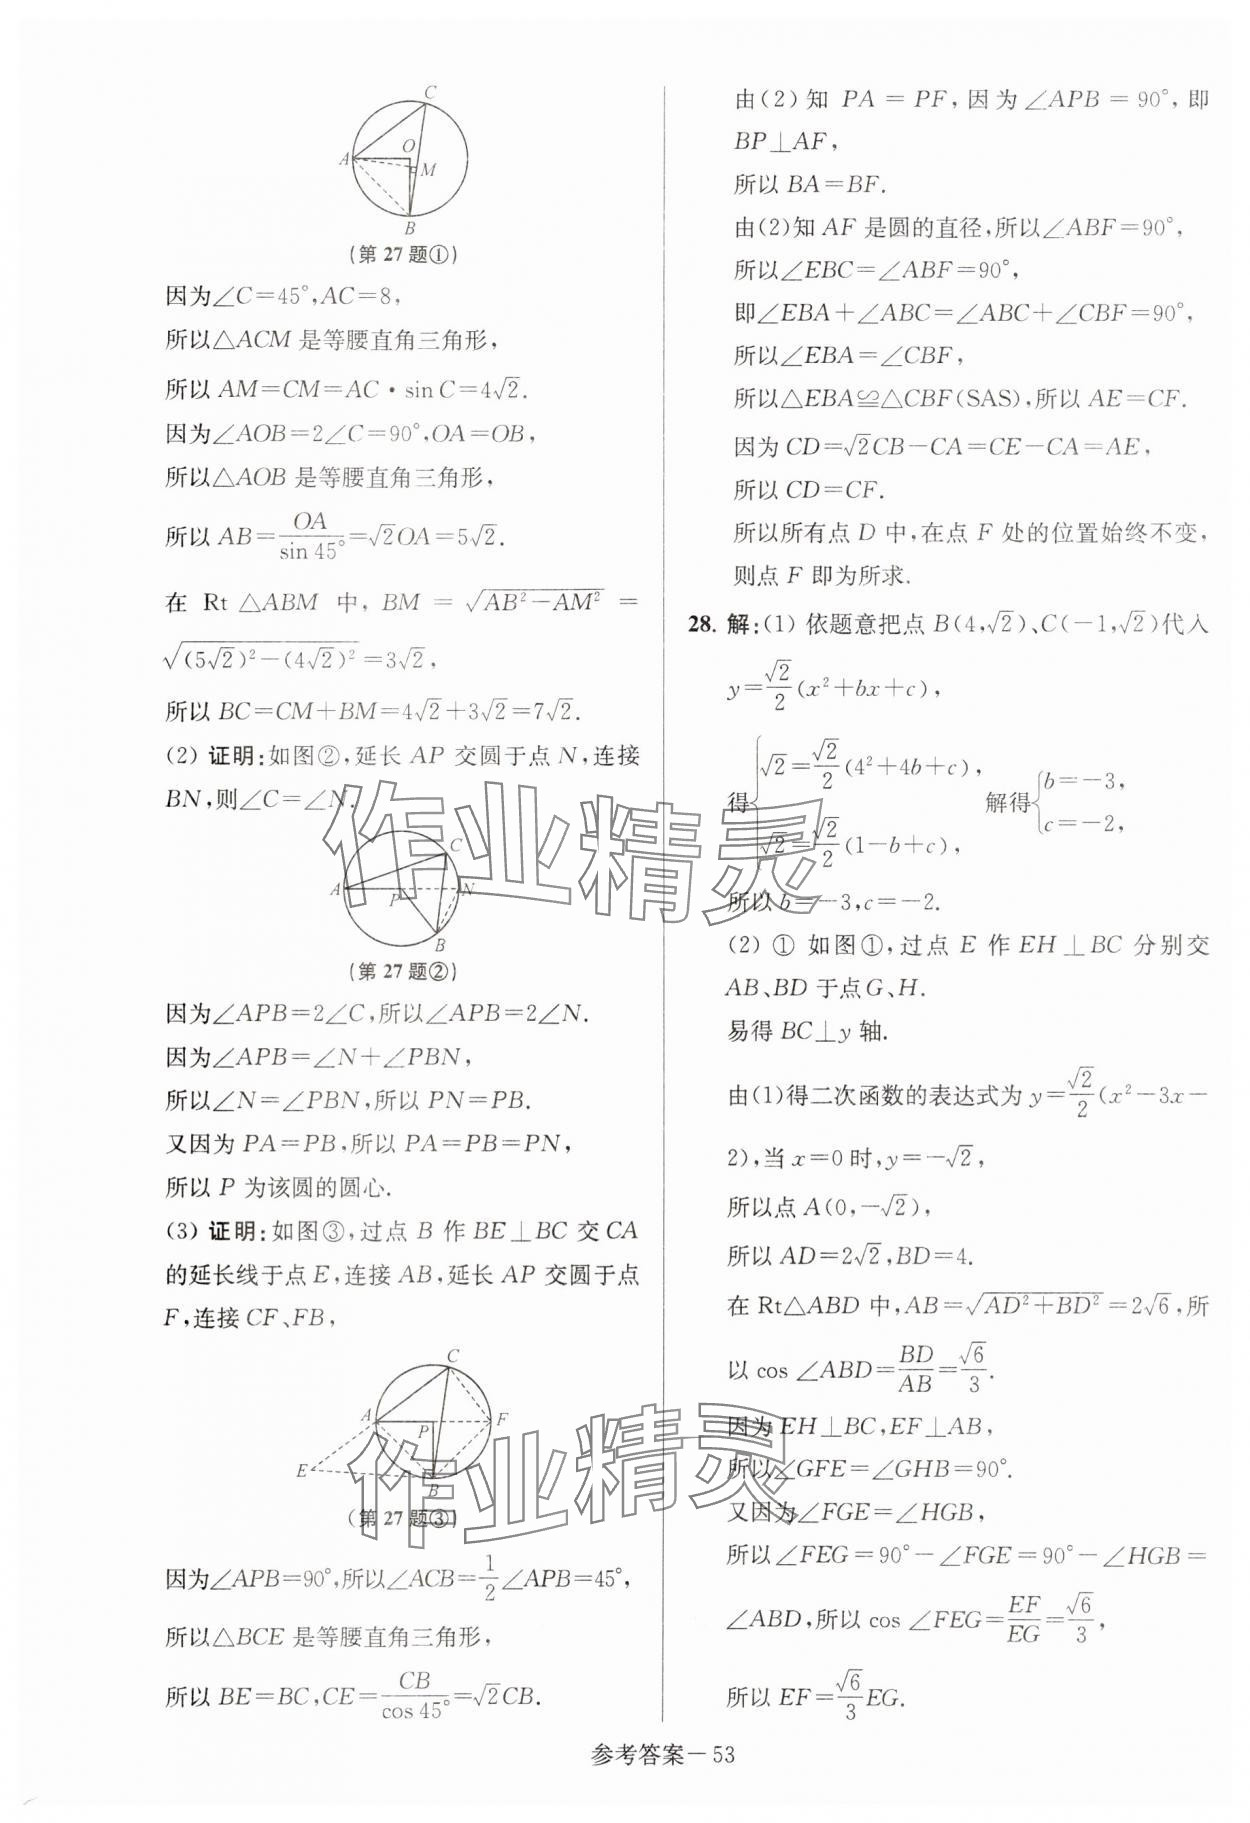 C
O
A
M
B
(第 27 题①)
因为∠C=45°,AC=8,
所以△ACM 是等腰直角三角形,
所以 AM=CM=AC·sin C=4√2.
因为∠AOB=2∠C=90°,OA=OB,
所以△AOB 是等腰直角三角形,
所以 AB=OA/sin 45°=√2OA=5√2.
在 Rt △ABM 中, BM = √(AB²-AM²) =
√((5√2)²-(4√2)²)=3√2,
所以 BC=CM+BM=4√2+3√2=7√2.
(2) 证明:如图②,延长 AP 交圆于点 N,连接
BN,则∠C=∠N.
C
A
P
N
B
(第 27 题②)
因为∠APB=2∠C,所以∠APB=2∠N.
因为∠APB=∠N+∠PBN,
所以∠N=∠PBN,所以 PN=PB.
又因为 PA=PB,所以 PA=PB=PN,
所以 P 为该圆的圆心.
(3) 证明:如图③,过点 B 作 BE⊥BC 交 CA
的延长线于点 E,连接 AB,延长 AP 交圆于点
F,连接 CF、FB,
C
A
P
F
E
B
(第 27 题③)
因为∠APB=90°,所以∠ACB=1/2∠APB=45°,
所以△BCE 是等腰直角三角形,
所以 BE=BC,CE=CB/cos 45°=√2CB.
由(2) 知 PA = PF, 因为∠APB = 90°, 即
BP⊥AF,
所以 BA=BF.
由(2)知 AF 是圆的直径,所以∠ABF=90°,
所以∠EBC=∠ABF=90°,
即∠EBA+∠ABC=∠ABC+∠CBF=90°,
所以∠EBA=∠CBF,
所以△EBA≌△CBF(SAS),所以 AE=CF.
因为 CD=√2CB-CA=CE-CA=AE,
所以 CD=CF.
所以所有点 D 中,在点 F 处的位置始终不变,
则点 F 即为所求.
28. 解:(1) 依题意把点 B(4,√2)、C(-1,√2)代入
y=√2/2(x²+bx+c),
得{√2=√2/2(4²+4b+c), √2=√2/2(1-b+c), 解得{b=-3, c=-2,
所以 b=-3,c=-2.
(2) ① 如图①,过点 E 作 EH⊥BC 分别交
AB、BD 于点G、H.
易得 BC⊥y 轴.
由(1)得二次函数的表达式为 y=√2/2(x²-3x-
2),当 x=0 时,y=-√2,
所以点 A(0,-√2),
所以 AD=2√2,BD=4.
在 Rt△ABD 中,AB=√(AD²+BD²)=2√6,所
以 cos ∠ABD=BD/AB=√6/3.
因为 EH⊥BC,EF⊥AB,
所以∠GFE=∠GHB=90°.
又因为∠FGE=∠HGB,
所以∠FEG=90°-∠FGE=90°-∠HGB=
∠ABD,所以 cos ∠FEG=EF/EG=√6/3,
所以 EF=√6/3EG.
作业精灵
作业精灵
参考答案－53